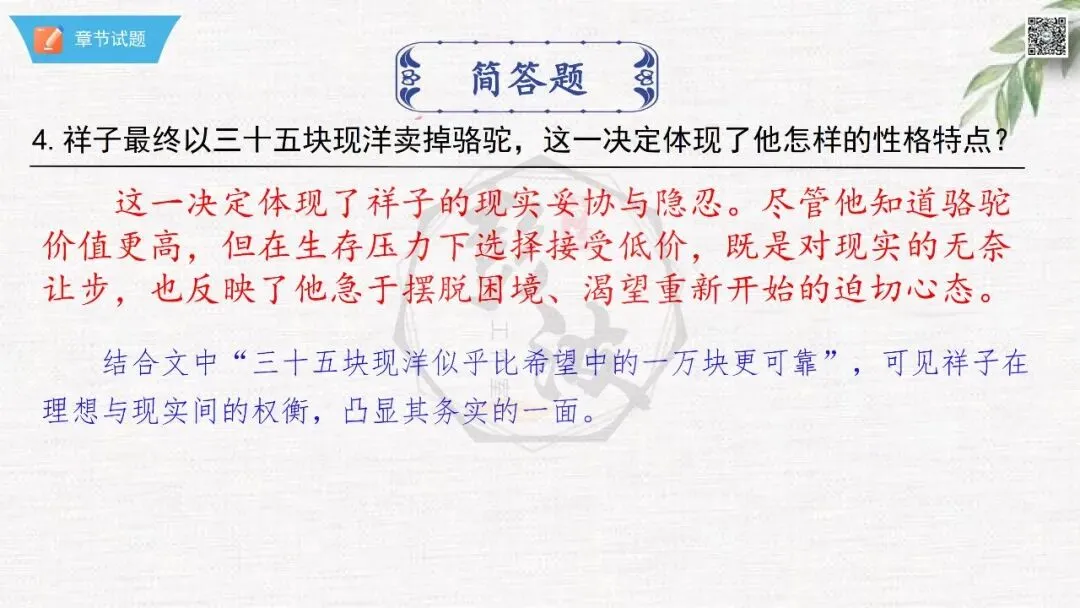 章节试题
简答题
4. 祥子最终以三十五块现洋卖掉骆驼，这一决定体现了他怎样的性格特点？
这一决定体现了祥子的现实妥协与隐忍。尽管他知道骆驼
价值更高，但在生存压力下选择接受低价，既是对现实的无奈
让步，也反映了他急于摆脱困境、渴望重新开始的迫切心态。
结合文中“三十五块现洋似乎比希望中的一万块更可靠”，可见祥子在
理想与现实间的权衡，凸显其务实的一面。